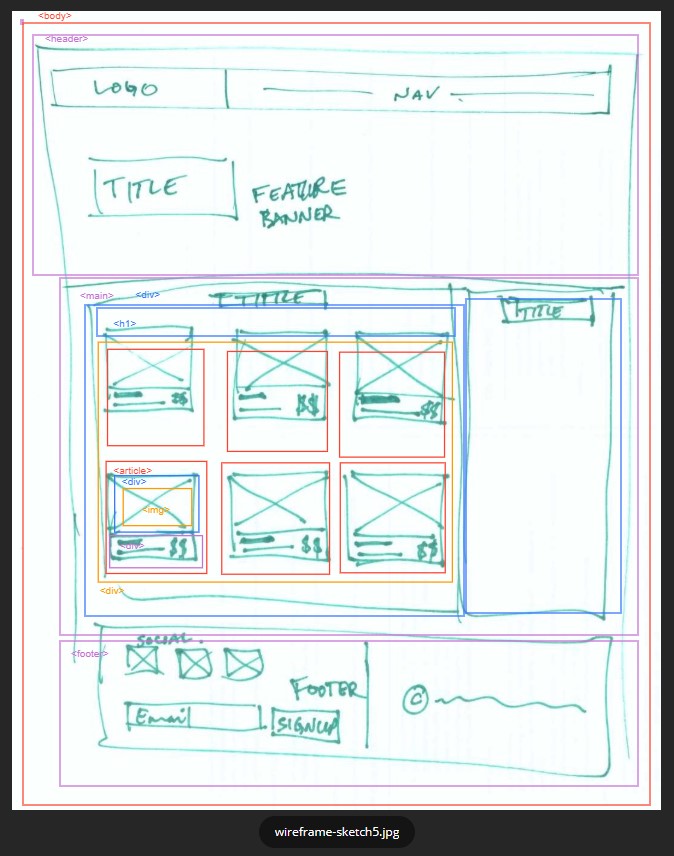 <body>
<header>
LOGO
NAV
TITLE
FEATURE
BANNER
<main>
<div>
TITLE
TITLE
<h1>
$$
$$
$$
<article>
<div>
<img>
<div>
$$
$$
$$
<div>
SOCIAL.
<footer>
FOOTER
Email
SIGNUP
©
wireframe-sketch5.jpg